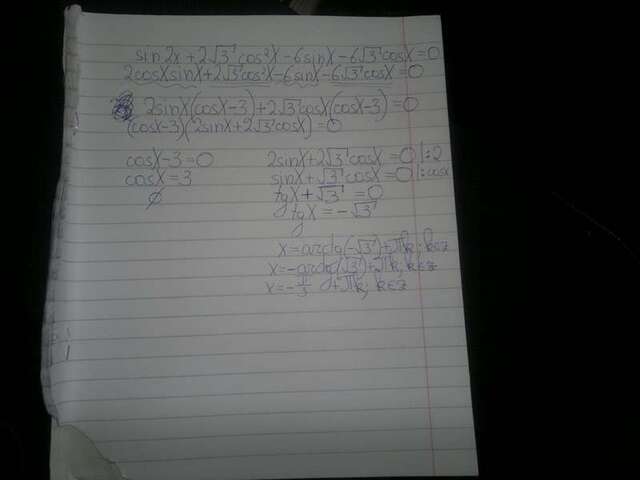 sin2x+2√3 cos²x-6sinx-6√3 cosx=0
2cosxsinx+2√3 cos²x-6sinx-6√3 cosx=0
2sinx(cosx-3)+2√3 cosx(cosx-3)=0
(cosx-3)(2sinx+2√3 cosx)=0
cosx-3=0
cosx=3
∅
2sinx+2√3 cosx=0 |:2
sinx+√3 cosx=0 |:cosx
tgx+√3=0
tgx=-√3
x=arctg(-√3)+πk; k∈z
x=-arctg(√3)+πk; k∈z
x=-π/3+πk; k∈z